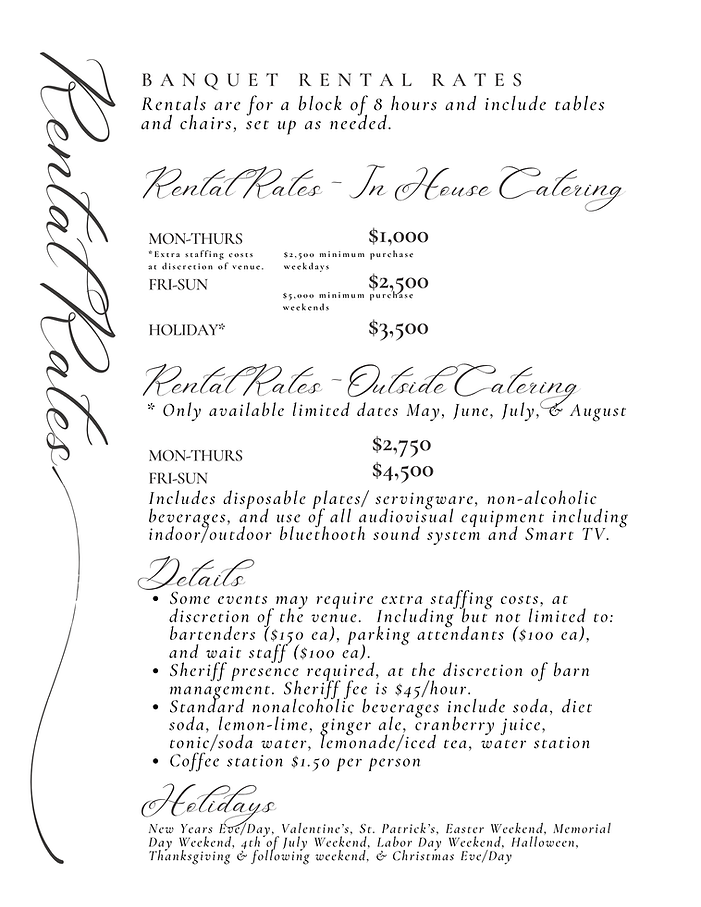 Rental Rates
BANQUET RENTAL RATES
Rentals are for a block of 8 hours and include tables
and chairs, set up as needed.
Rental Rates - In House Catering
MON-THURS $1,000
*Extra staffing costs $2,500 minimum purchase
at discretion of venue. weekdays
FRI-SUN $2,500
$5,000 minimum purchase
weekends
HOLIDAY* $3,500
Rental Rates - Outside Catering
* Only available limited dates May, June, July, & August
MON-THURS $2,750
FRI-SUN $4,500
Includes disposable plates/ servingware, non-alcoholic
beverages, and use of all audiovisual equipment including
indoor/outdoor bluethooth sound system and Smart TV.
Details
• Some events may require extra staffing costs, at
discretion of the venue. Including but not limited to:
bartenders ($150 ea), parking attendants ($100 ea),
and wait staff ($100 ea).
• Sheriff presence required, at the discretion of barn
management. Sheriff fee is $45/hour.
• Standard nonalcoholic beverages include soda, diet
soda, lemon-lime, ginger ale, cranberry juice,
tonic/soda water, lemonade/iced tea, water station
• Coffee station $1.50 per person
Holidays
New Years Eve/Day, Valentine's, St. Patrick's, Easter Weekend, Memorial
Day Weekend, 4th of July Weekend, Labor Day Weekend, Halloween,
Thanksgiving & following weekend, & Christmas Eve/Day